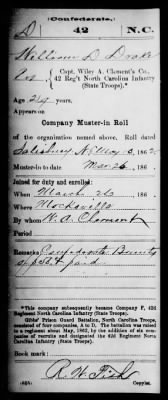 (Confederate.)
D 42 N.C.
William D Drake
Pvt, Capt. Wiley A. Clement's Co.,
42 Reg't North Carolina Infantry
(State Troops).*
Age 24 years.
Appears on
Company Muster-in Roll
of the organization named above. Roll dated
Salisbury N.C. May 3, 1862.
Muster-in to date Mar 26, 186 .
Joined for duty and enrolled:
When March 26, 186 .
Where Mocksville
By whom W. A. Clement
Period
Remarks: Confederate Bounty
of $50 paid
*This company subsequently became Company F, 42d
Regiment North Carolina Infantry (State Troops).
Gibbs' Prison Guard Battalion, North Carolina Troops,
consisted of four companies, A to D. The battalion was raised
to a regiment about May, 1862, by the addition of six com-
panies of recruits and designated the 42d Regiment North
Carolina Infantry (State Troops).
Book mark:
R. W. Fish
Copyist.